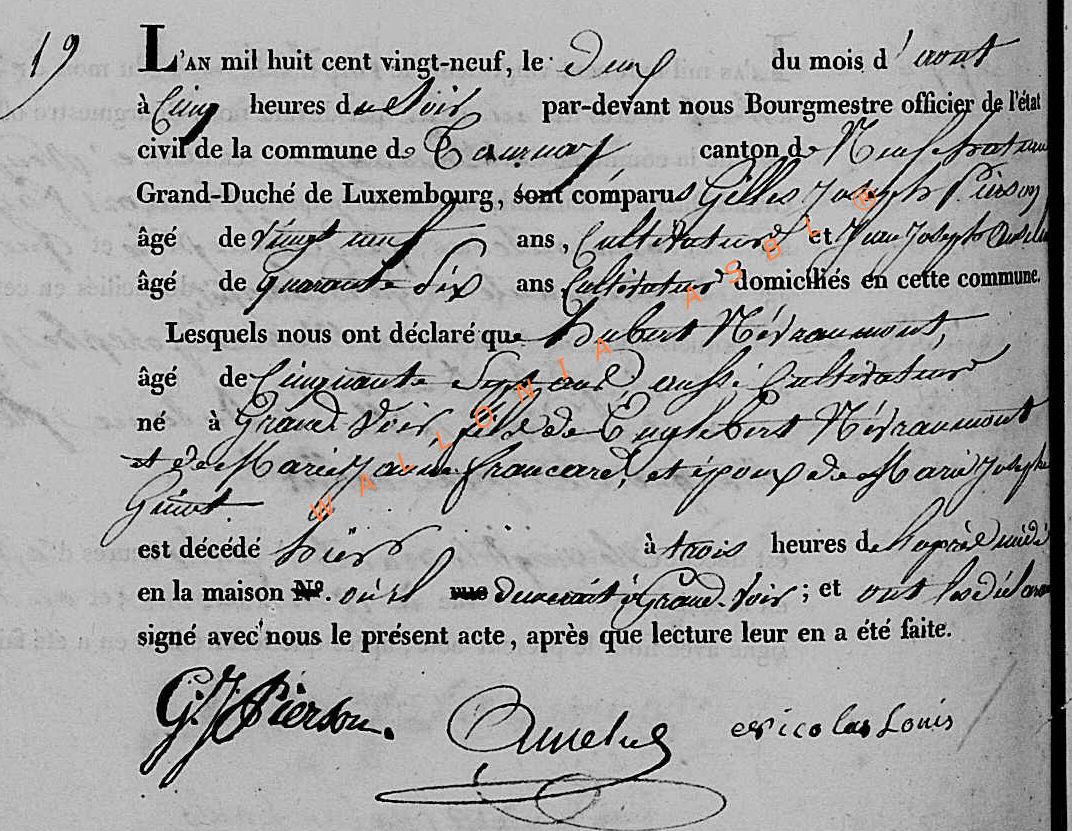 19
L'AN mil huit cent vingt-neuf, le Deux du mois d'aout
à Cinq heures du Soir par-devant nous Bourgmestre officier de l'état
civil de la commune de Tournay canton de Neufchateau
Grand-Duché de Luxembourg, sont comparus Gilles Joseph Pierson
âgé de Vingt neuf ans, Cultivateur et Jean Joseph
âgé de quarante Six ans Cultivateur domiciliés en cette commune.
Lesquels nous ont déclaré que hubert Névraumont,
âgé de Cinquante Sept ans, aussi Cultivateur
né à Grand Voir, fils de Englebert Névraumont
et de Marie Jeanne francard, et époux de Marie Josephe
est décédé hier à trois heures de l'après midi
en la maison No. où il rue demeurait à Grand-Voir; et ont les déclarans
signé avec nous le présent acte, après que lecture leur en a été faite.
G. J. Pierson. Nicolas Louis
WALLONIA ASBL ®